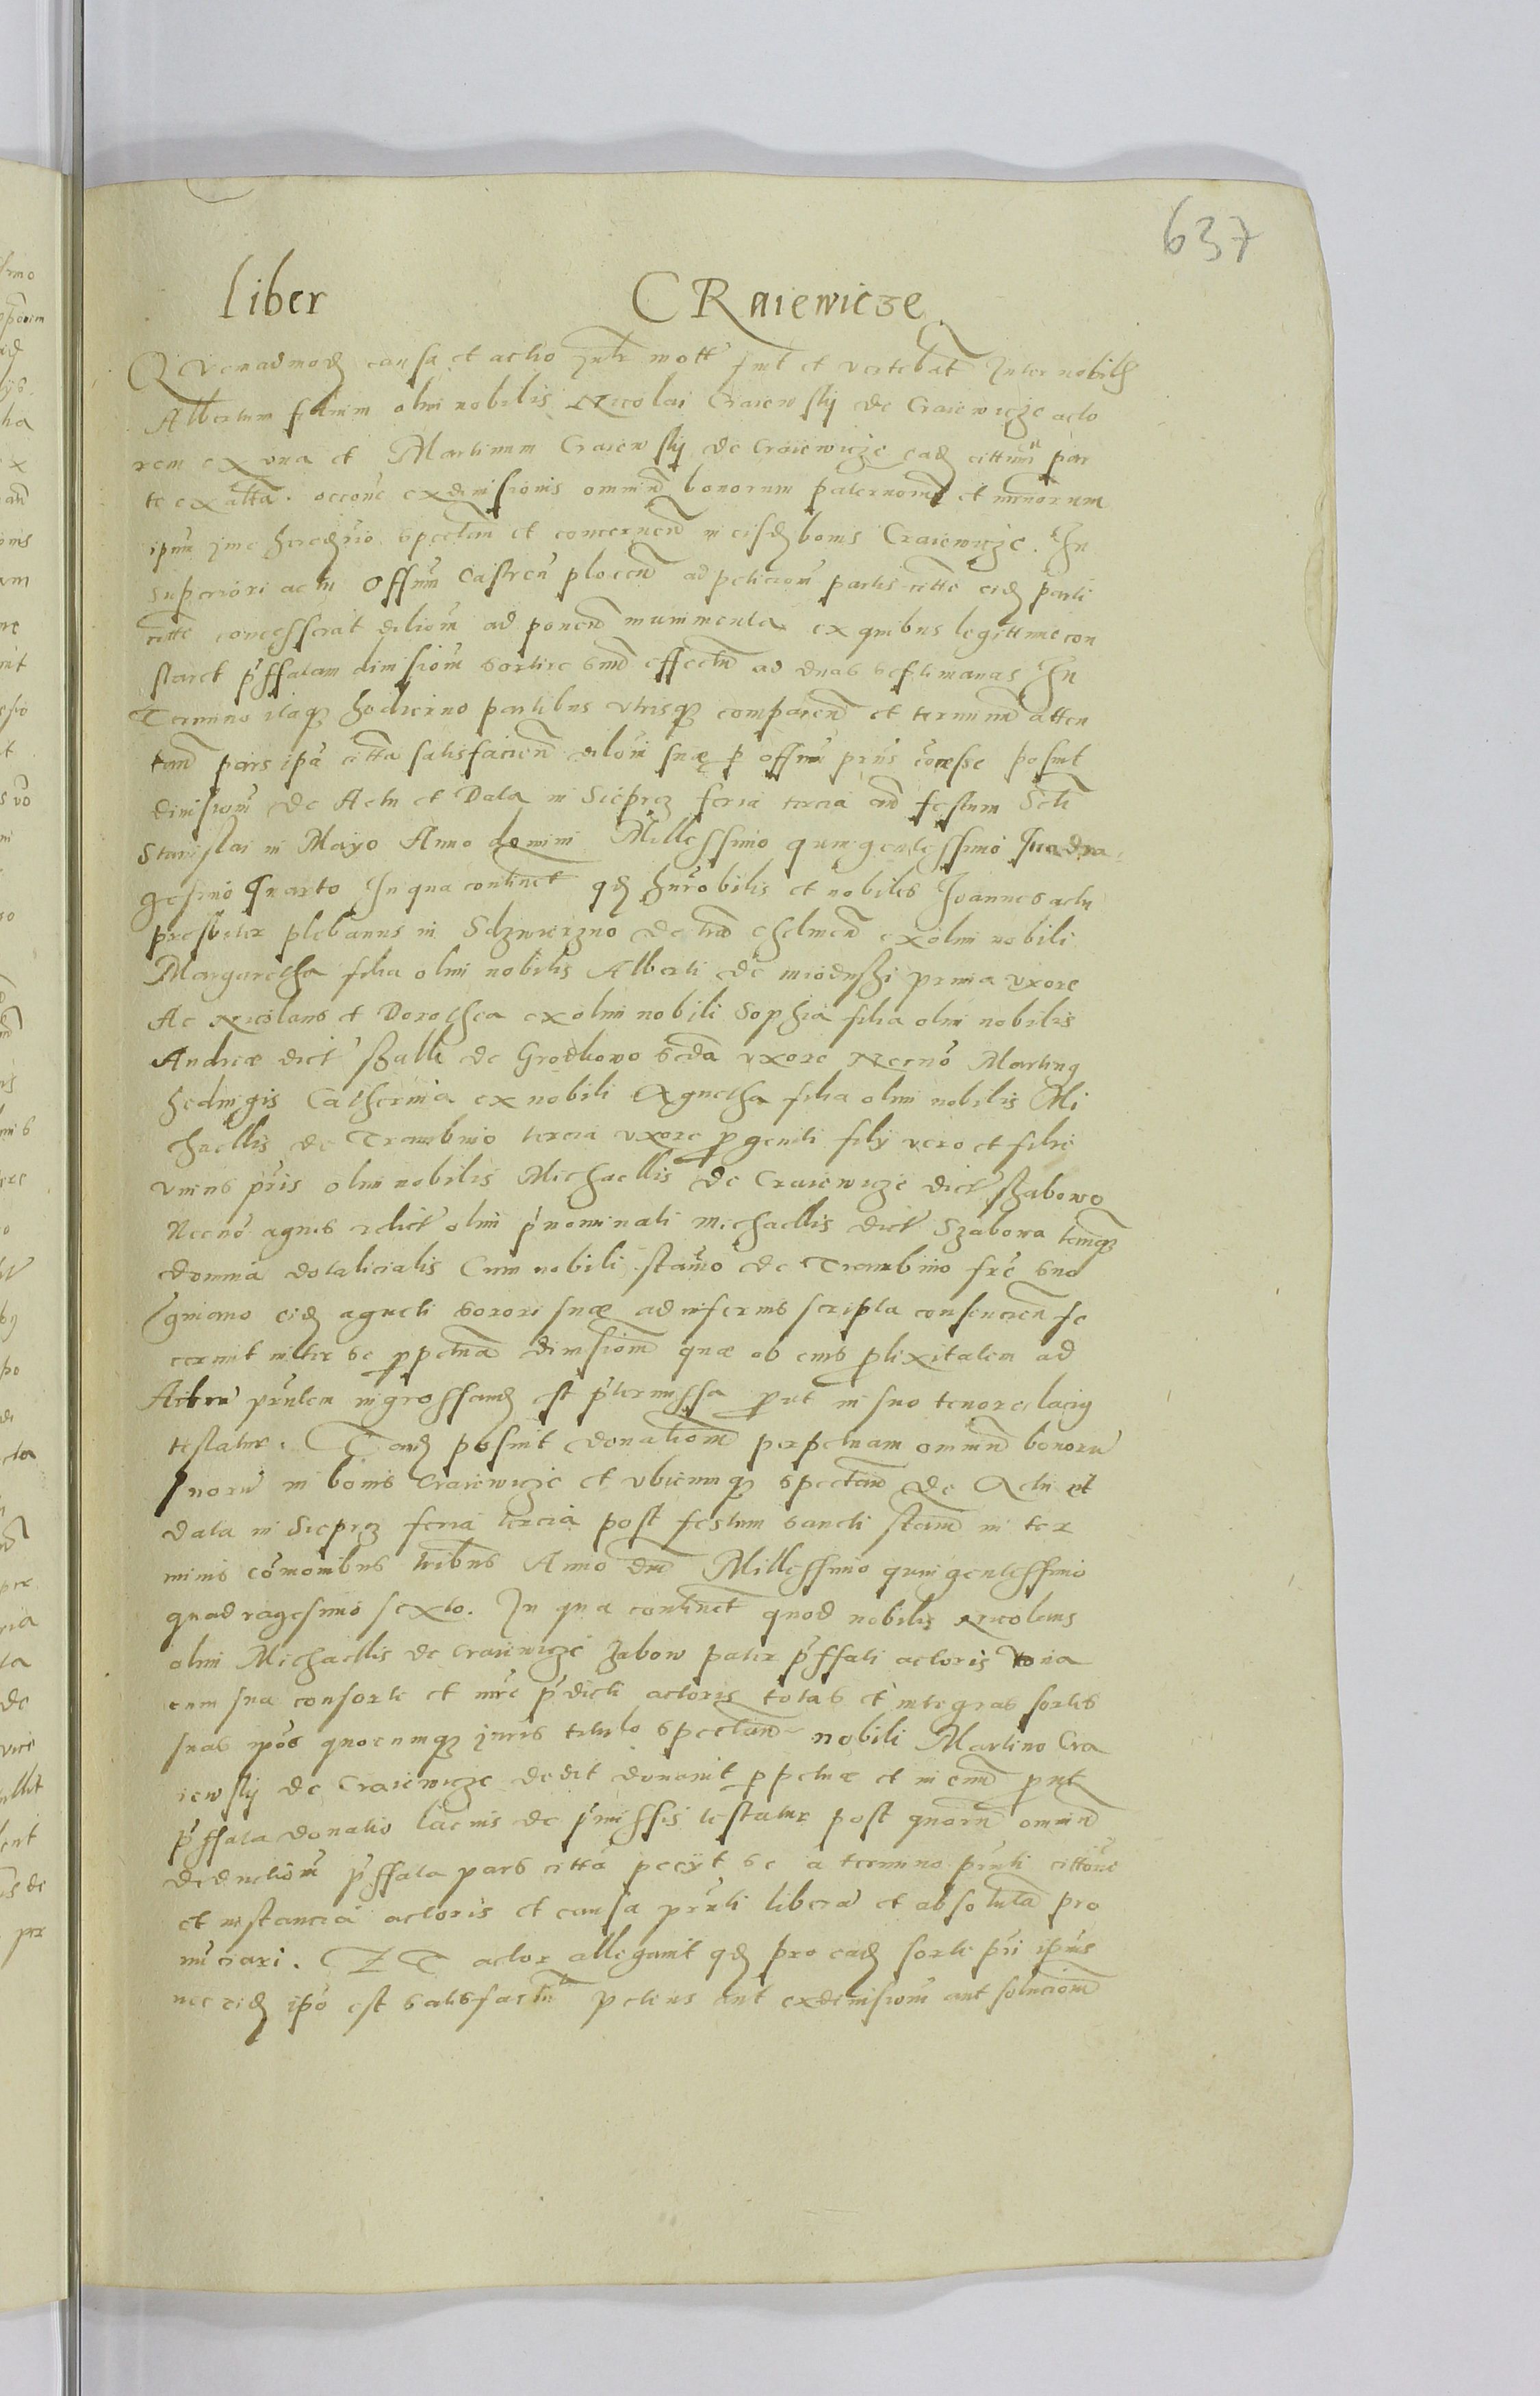 637
Liber CRaiewicze
Quemadmod causa et actio inter mott fuit et vertebat Inter nobilem
Albertum filium olim nobilis Nicolai Craiewskij de Craiewicze acto
rem ex una et Martinum Craiewskij de Craiewicze cittum par
te ex altera exdiuisionis omnium bonorum paternorum et
ipsum iure spectan et concernen in eisdem bonis Craiewicze. In
superiori actu Offium Castren plocen ad peticionem partis citte eidem parti
citte concesserat dilionem ad ponen munimenta ex quibus legittime con
staret pffatam diuisionem sortire suum effectum ad duas septimanas In
Termino itaque hodierno partibus vtrisque comparen et terminum atten
tan pars ipa citta satisfacien suę p offium prius posuit
diuisionem de Actu et Data in Sieprcz feria tercia an festum Scti
Stanislai in Mayo Anno domini Millessimo quingentessimo Quadra
gesimo Quarto In qua continet qd et nobiles Joannes actu
presbiter plebanus in de chelmen ex olim nobili
Margaretha filia olim nobilis Alberti de prima vxore
Ac Nicolaus et Dorothea ex olim nobili Sophia filia olim nobilis
Andreæ dict de Grodkowo secda vxore Necno Martinus
hedwigis Catherina ex nobili Agnetha filia olim nobilis Mi
chaellis de Trambino tercia vxore pgeniti filij vero et filie
vnius pris olim nobilis Michaellis de Craiewicze dict Szabowo
Necno agnes relict olim pnominati Michaellis dict Szabowa tanquam
domina dotalicialis Cum nobili de Trambino fre suo
gmano eidem agneti sorori suæ ad inferius scripta consencien fe
cerunt inter se ppetuam diuisionem quæ ob eius plixitatem ad
Acta prntem ingrossand est ptermissa put in suo tenore lacius
testatur. posuit donationem perpetuam omnium bonorum
suorum in bonis Craiewicze et vbicunque spectan de Actu et
data in Sieprcz feria tercia post festum sancti in ter
minis comonibus tribus Anno dni Millessimo quingentessimo
quadragesimo sexto. In qua continet quod nobilis Nicolaus
olim Michaellis de Craiewicze Zabow pater pffati actoris vna
cum sua consorte et mre pdicti actoris totas et integras sortes
suas ipos quocunque iuris titulo spectan nobili Martino Cra
iewskij de Craiewicze dedit donauit ppetuæ et in euum put
pffata donatio lacius de pmissis testatur post quorum omnium
deductionem pffata pars citta pecijt se a termino prnti cittonis
et instancia actoris et causa prnti liberam et absolutam pro
nunciari. ET actor allegauit qd pro eadem sorte pri ipius
nec eidem ipo est satisfactum petens aut exdiuisionem aut solucionem